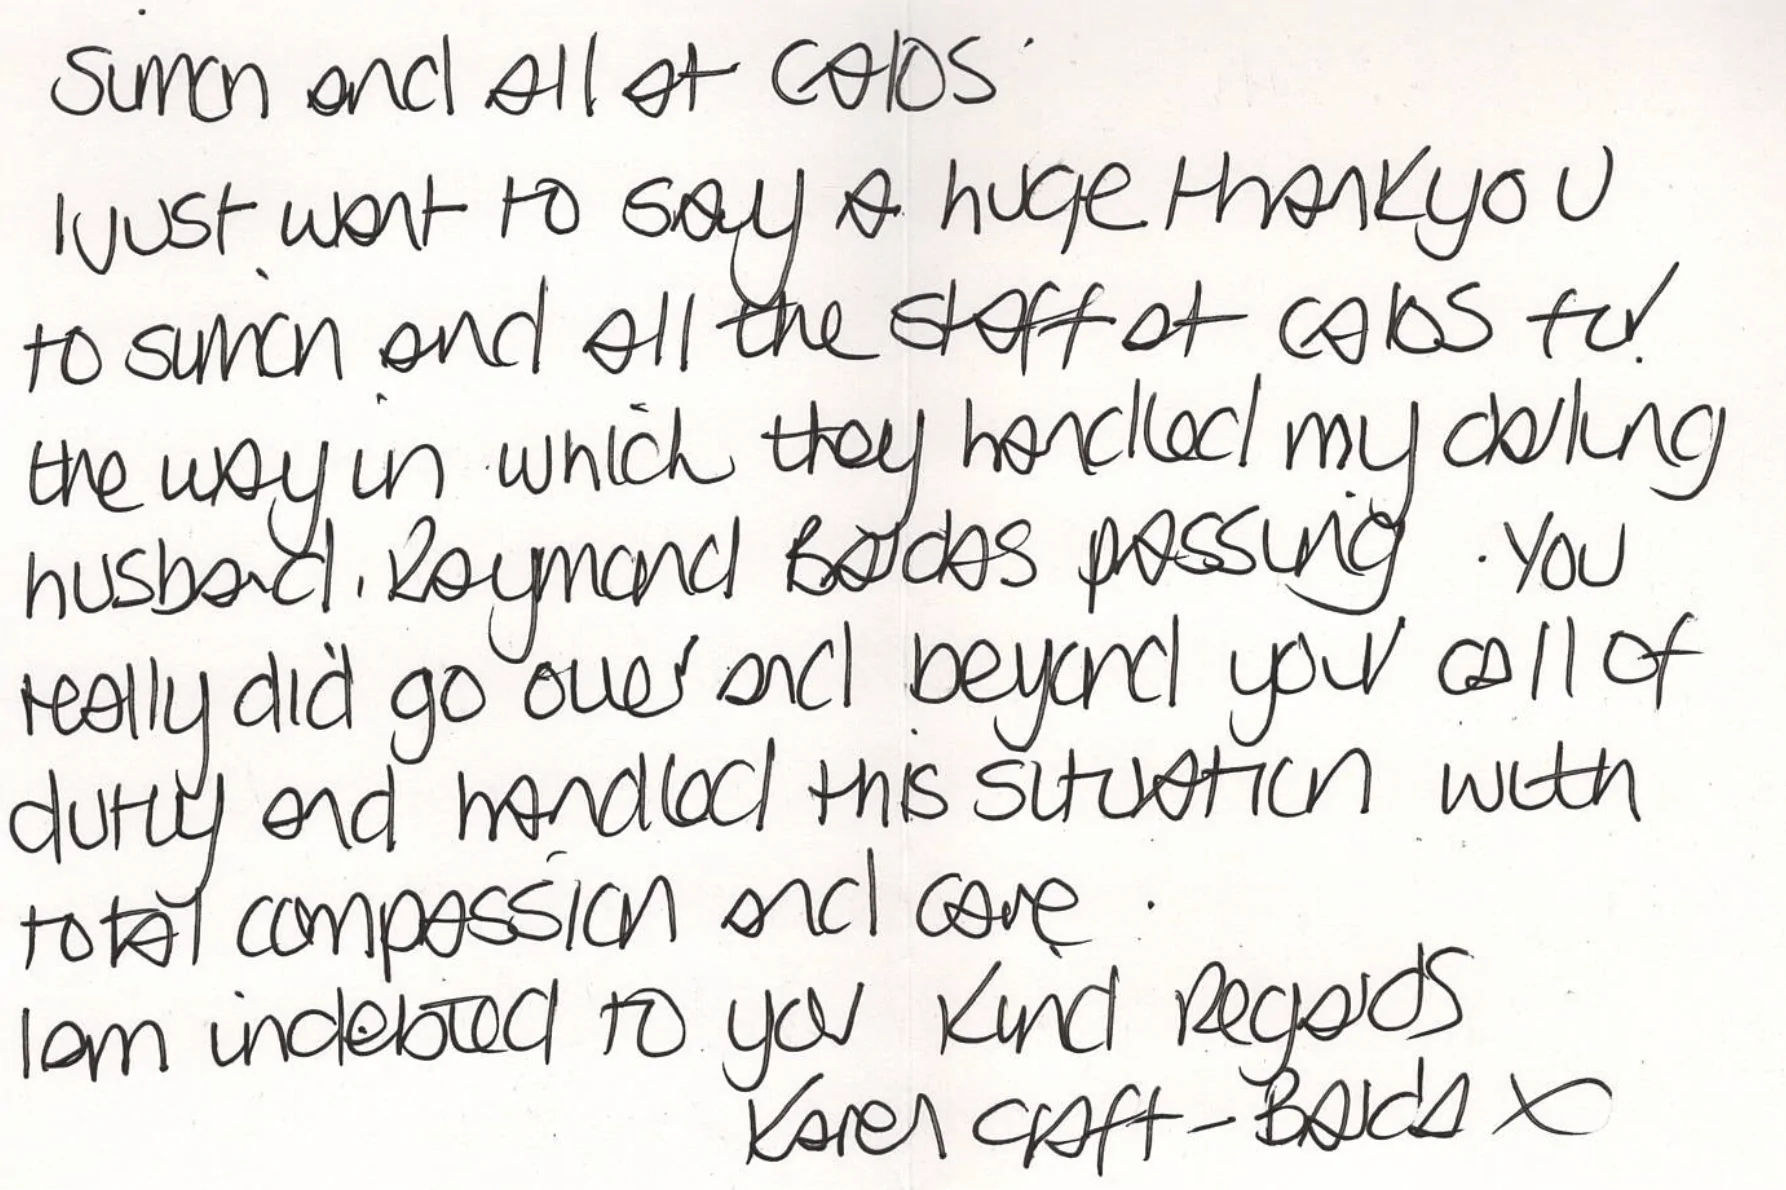 Simon and all at CALOS.
I just want to say a huge thankyou
to simon and all the staff at CALOS for
the way in which they handled my darling
husband. Raymond Bardas passing. You
really did go over and beyond your call of
dutiy and handled this situation with
total compassion and care.
I am indebted to you Kind Regards
Karen Craft-Barda x